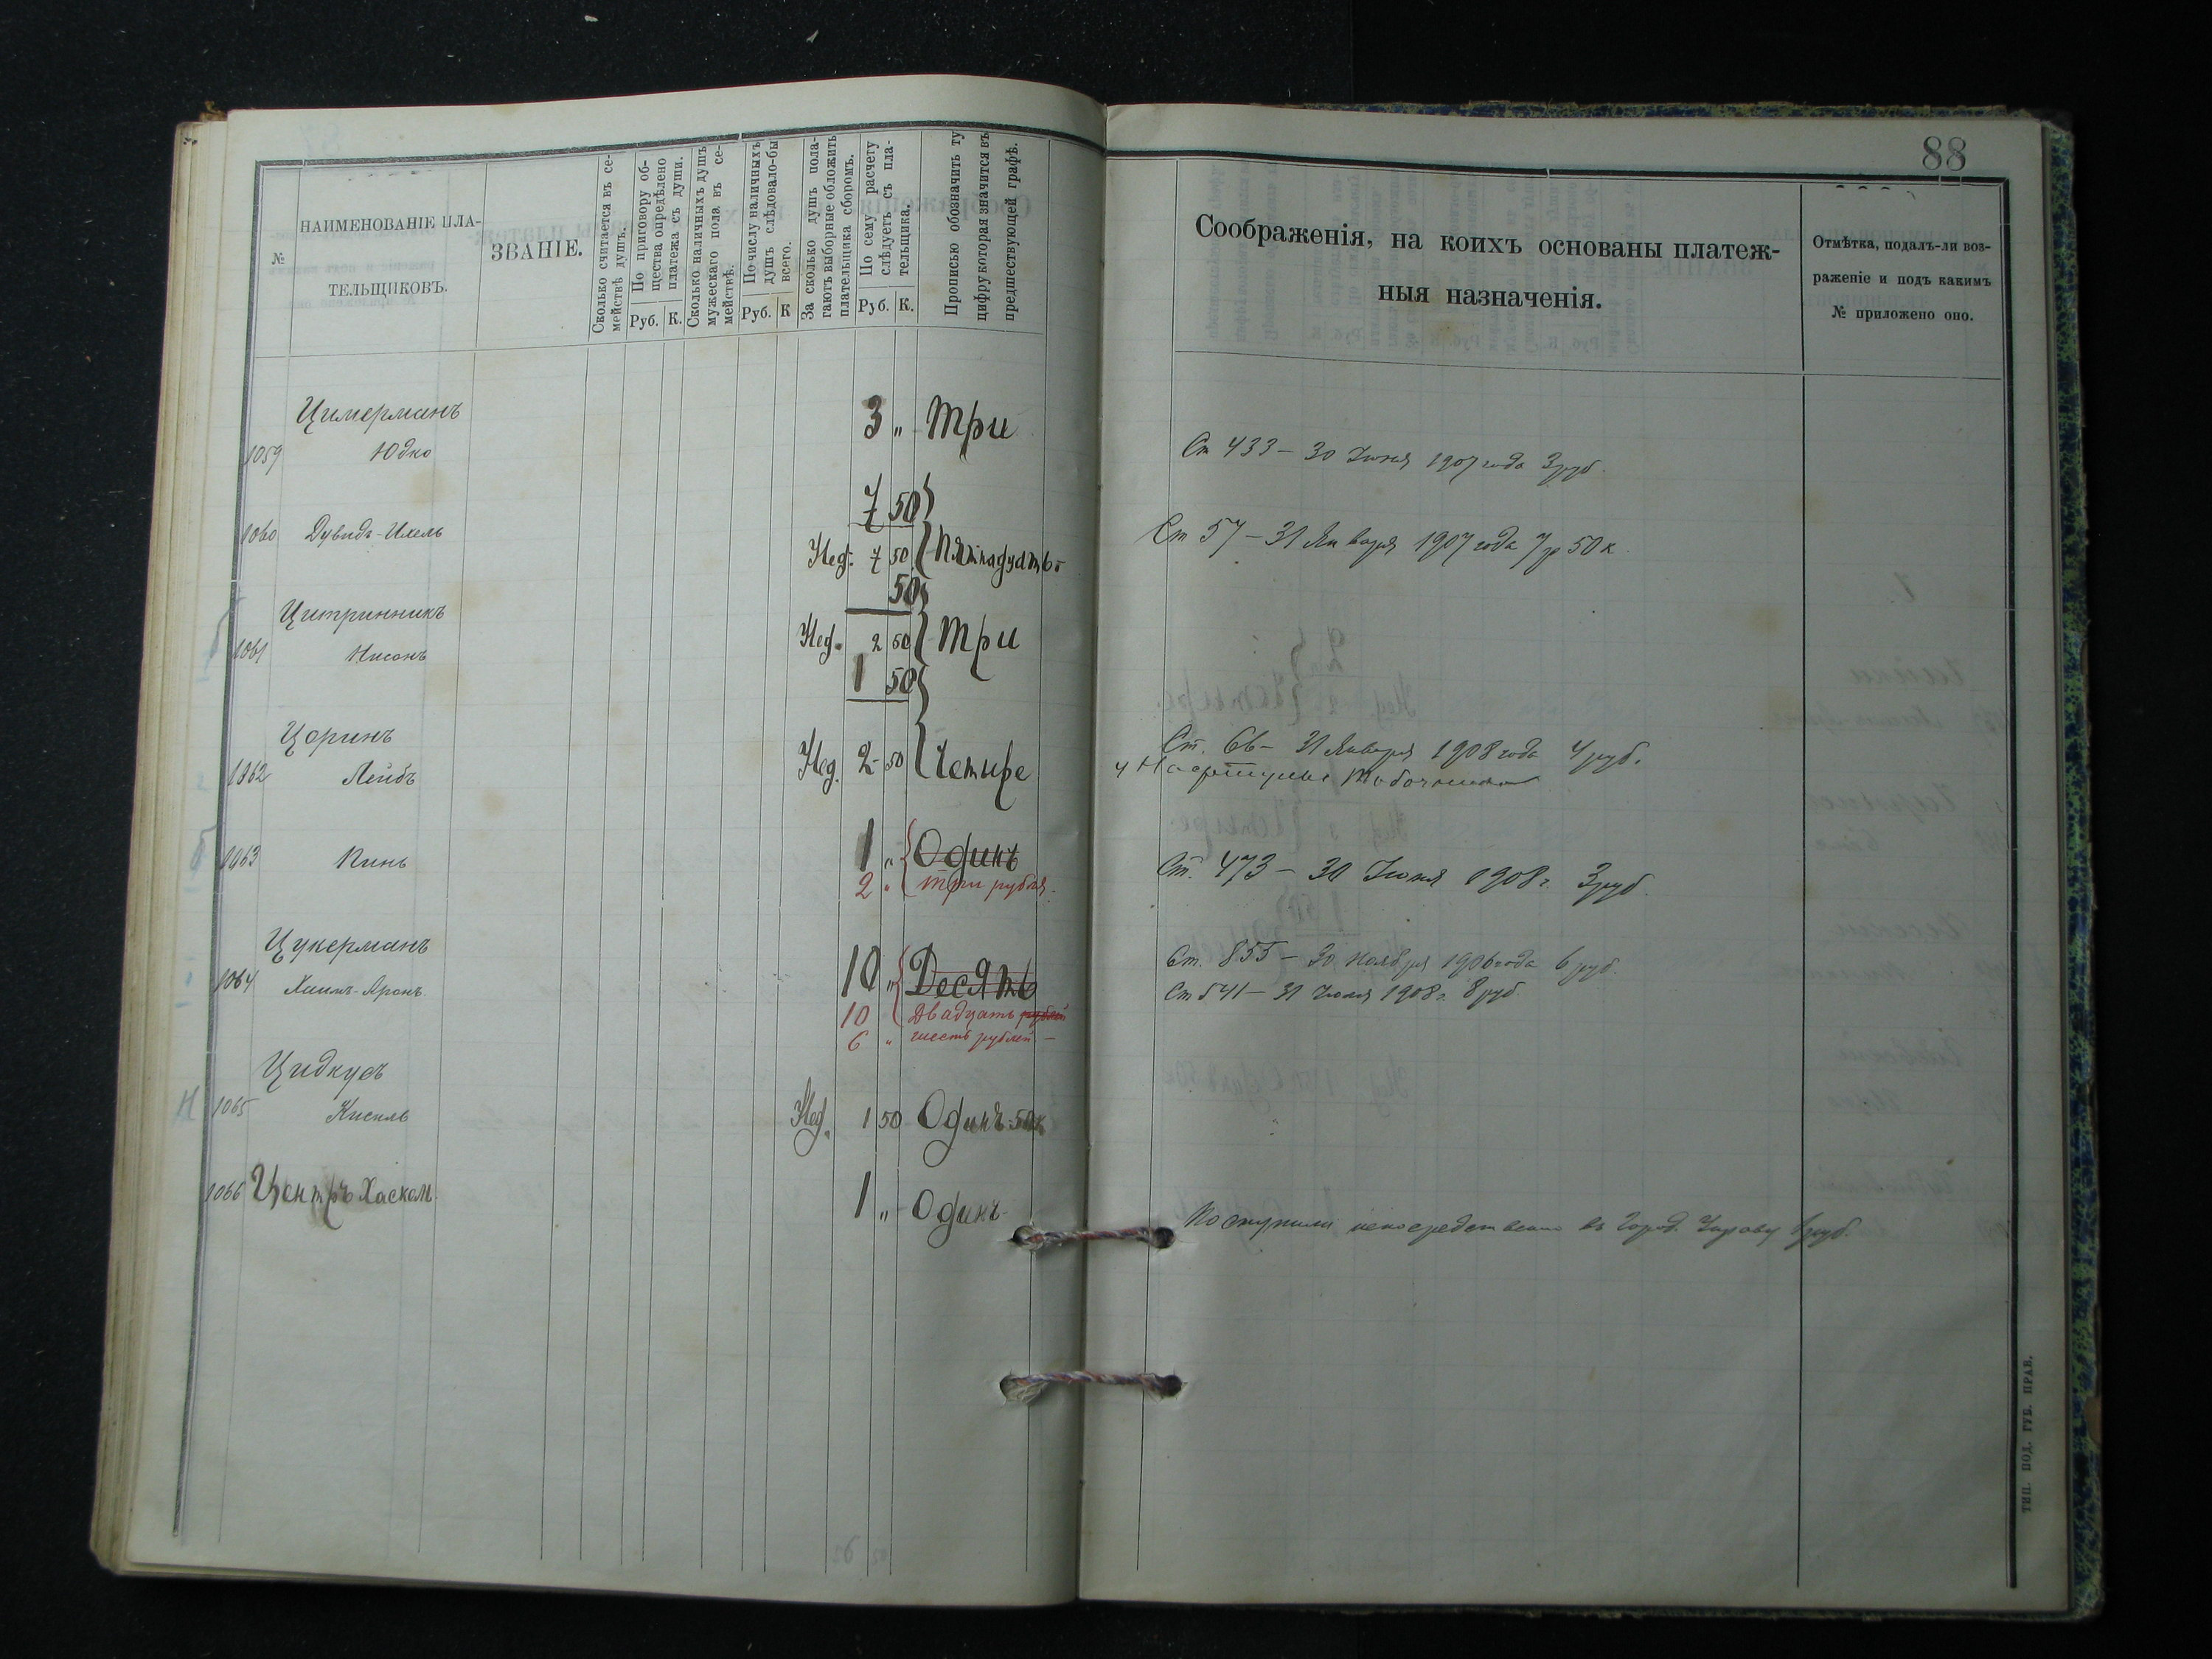 88
№
НАИМЕНОВАНІЕ ПЛА-
ТЕЛЬЩИКОВЪ.
ЗВАНІЕ.
Сколько считается въ се-
мействѣ душъ.
По приговору об-
щества опредѣлено
платежа съ души.
Руб. К.
Сколько наличныхъ душъ
мужескаго пола въ се-
мействѣ.
По числу наличныхъ
душъ слѣдовало-бы
всего.
Руб. К
За сколько душъ пола-
гаютъ выборные обложить
плательщика сборомъ.
По сему расчету
слѣдуетъ съ пла-
тельщика.
Руб. К.
Прописью обозначить ту
цифру которая значится въ
предшествующей графѣ.
Соображенія, на коихъ основаны платеж-
ныя назначенія.
Отмѣтка, подалъ-ли воз-
раженіе и подъ какимъ
№ приложено оно.
Цимерманъ
1059 Юдко 3 „ Три
Ст 433 – 30 Іюня 1907 года 3 руб.
7 50
1060 Дувидъ-Ицель Нед. 7 50 Пятнадцать
Ст 57 – 31 Января 1907 года 7 р 50 к.
50
Цитринникъ
1061 Нисонъ Нед. 2 50 Три
1 50
Цоринъ
1062 Лейбъ Нед. 2 50 Четыре
Ст. 66 – 31 Января 1908 года 4 руб.
1063 Пинь 1 „ Одинъ
2 „ три рубля
Ст. 473 – 30 Іюня 1908 г. 3 руб.
Цукерманъ
1064 Хаимъ-Аронъ 10 „ Десять
10 Двадцать рублей
6 „ шесть рублей –
Ст. 855 – 30 Ноября 1906 года 6 руб.
Ст 541 – 31 Іюля 1908 г. 8 руб
Цидкусъ
1065 Кисиль Нед. 1 50 Одинъ 50 к
1066 Центръ Хаскел 1 „ Одинъ
Поступили непосредственно въ Город. Управу 1 руб.
ТИП. ПОД. ГУБ. ПРАВ.